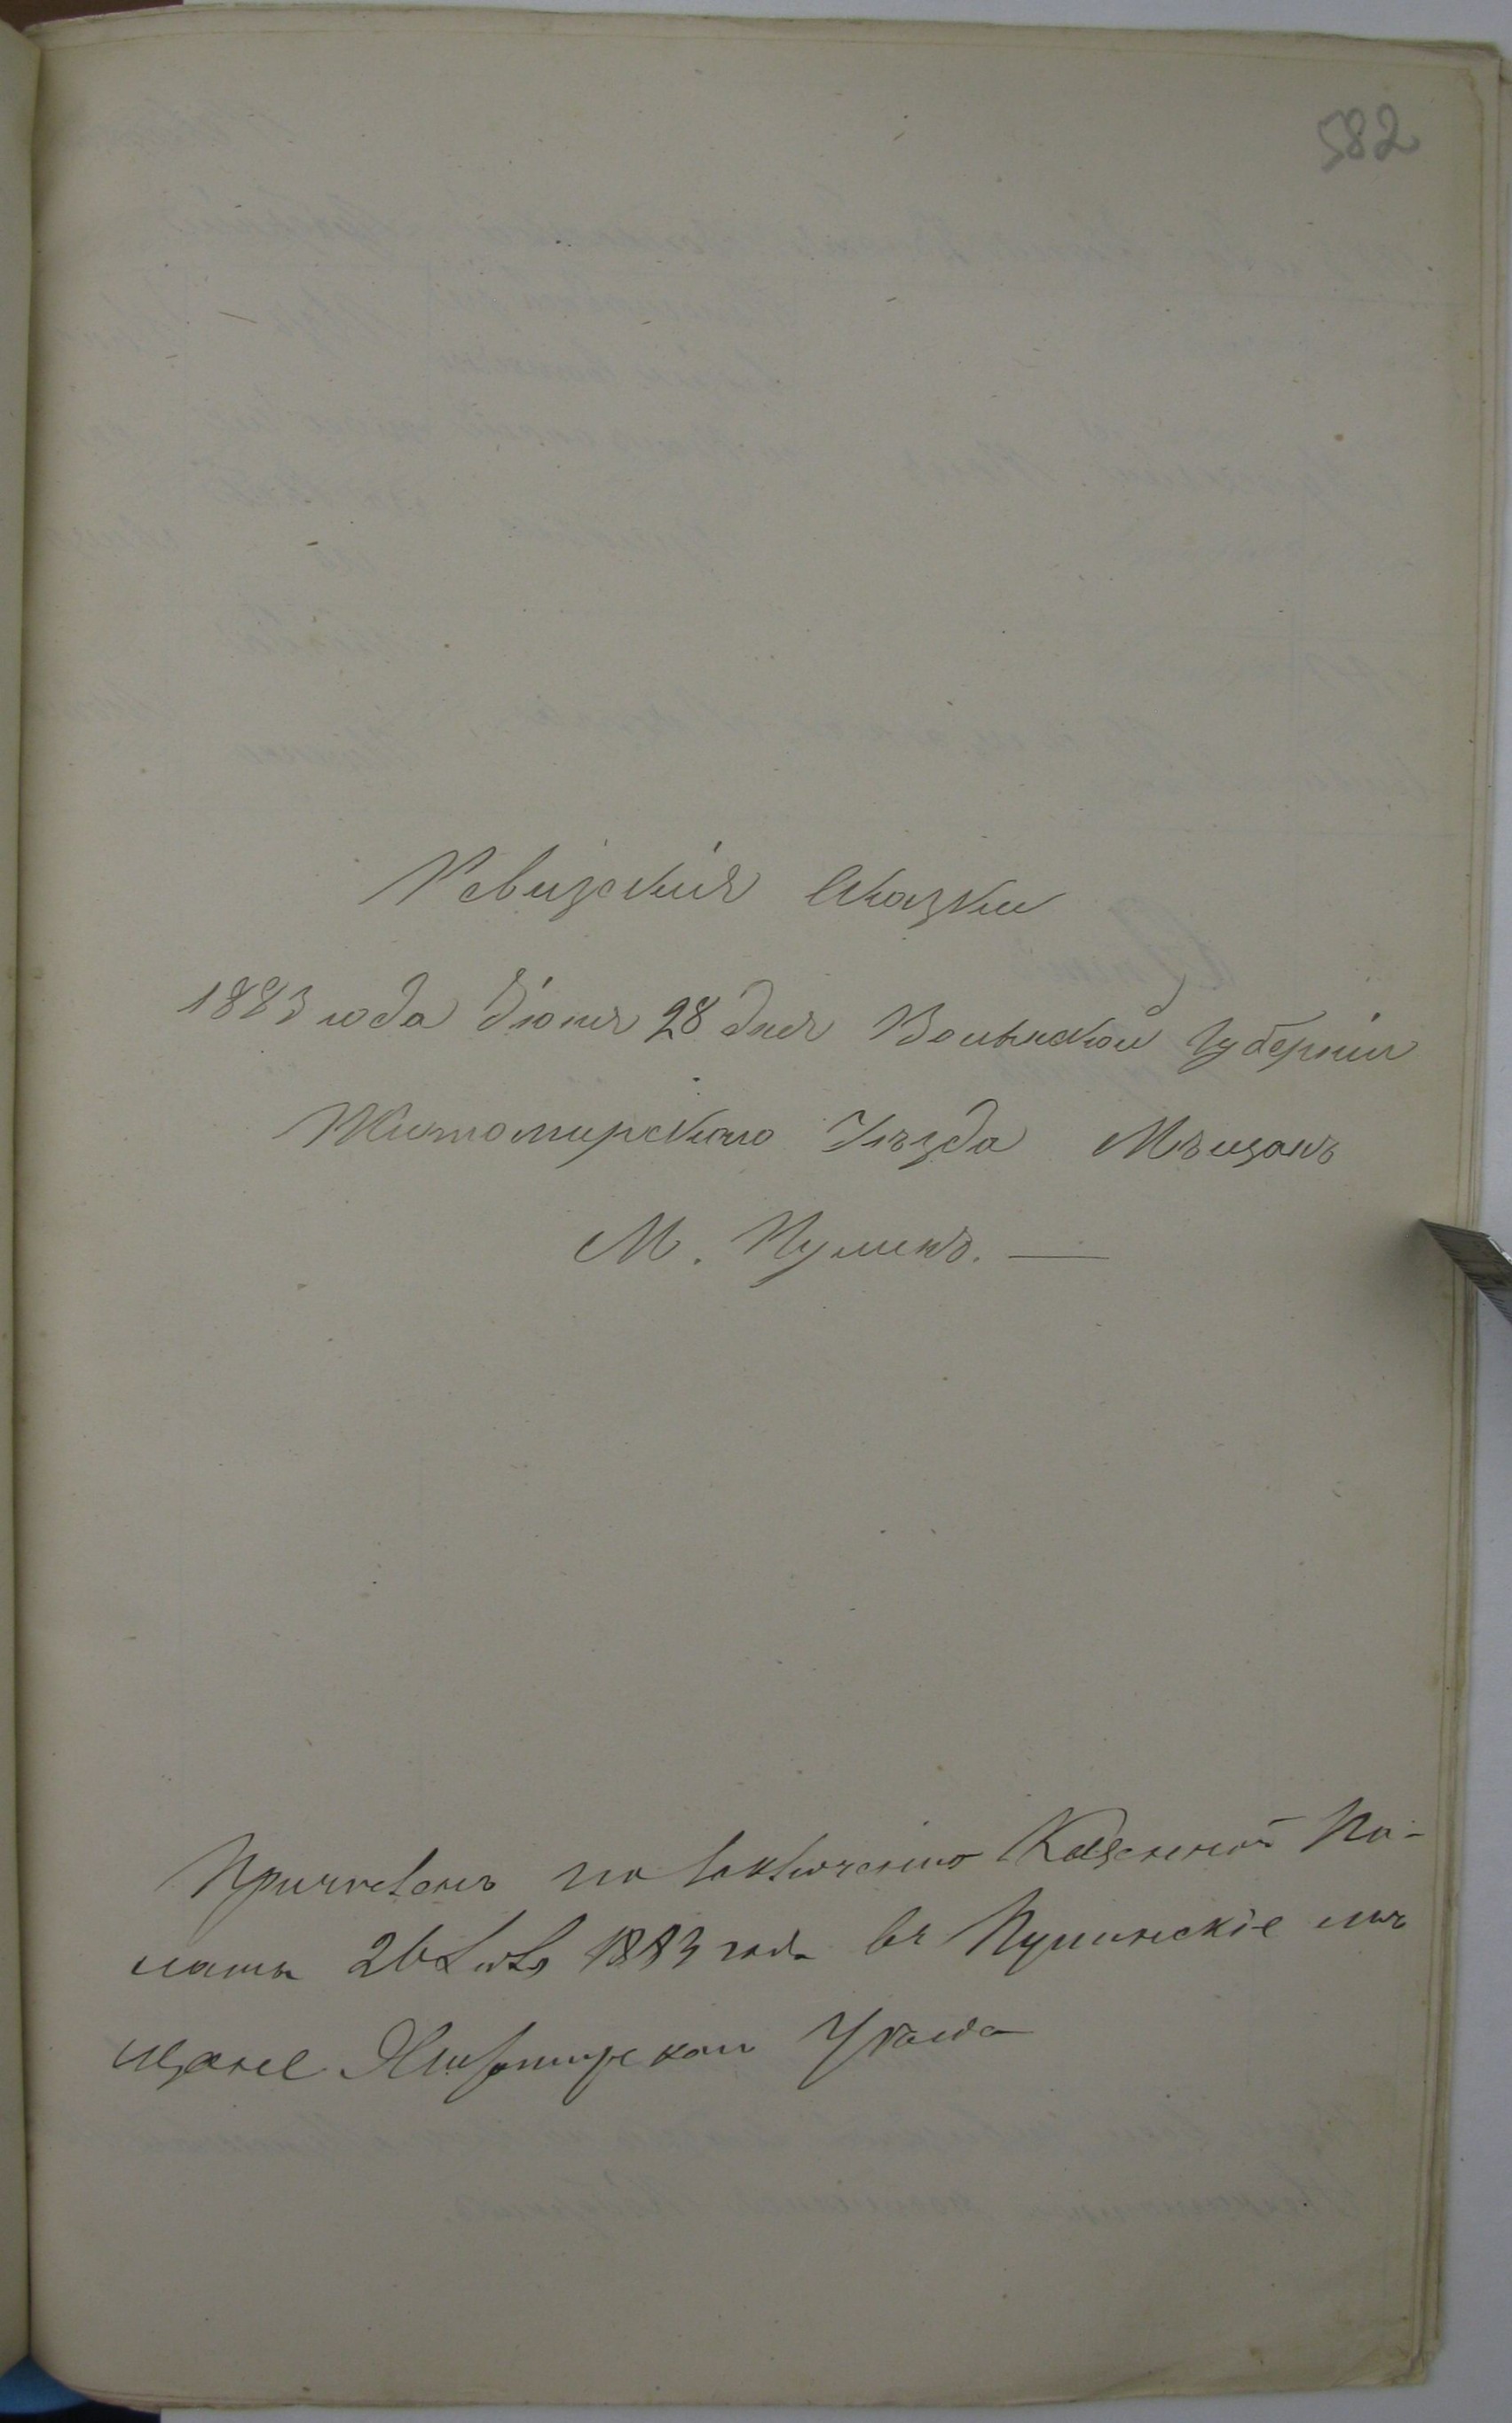 582
Ревизскія Сказки
1883 года Іюня 28 дня Волынской Губерніи
Житомирскаго Уѣзда Мѣщанъ
М. Пулинъ. —
Причисленъ по заключенію Казенной Па-
латы 26 1883 года въ Пулинскіе мѣ
щане Житомирскаго Уѣзда